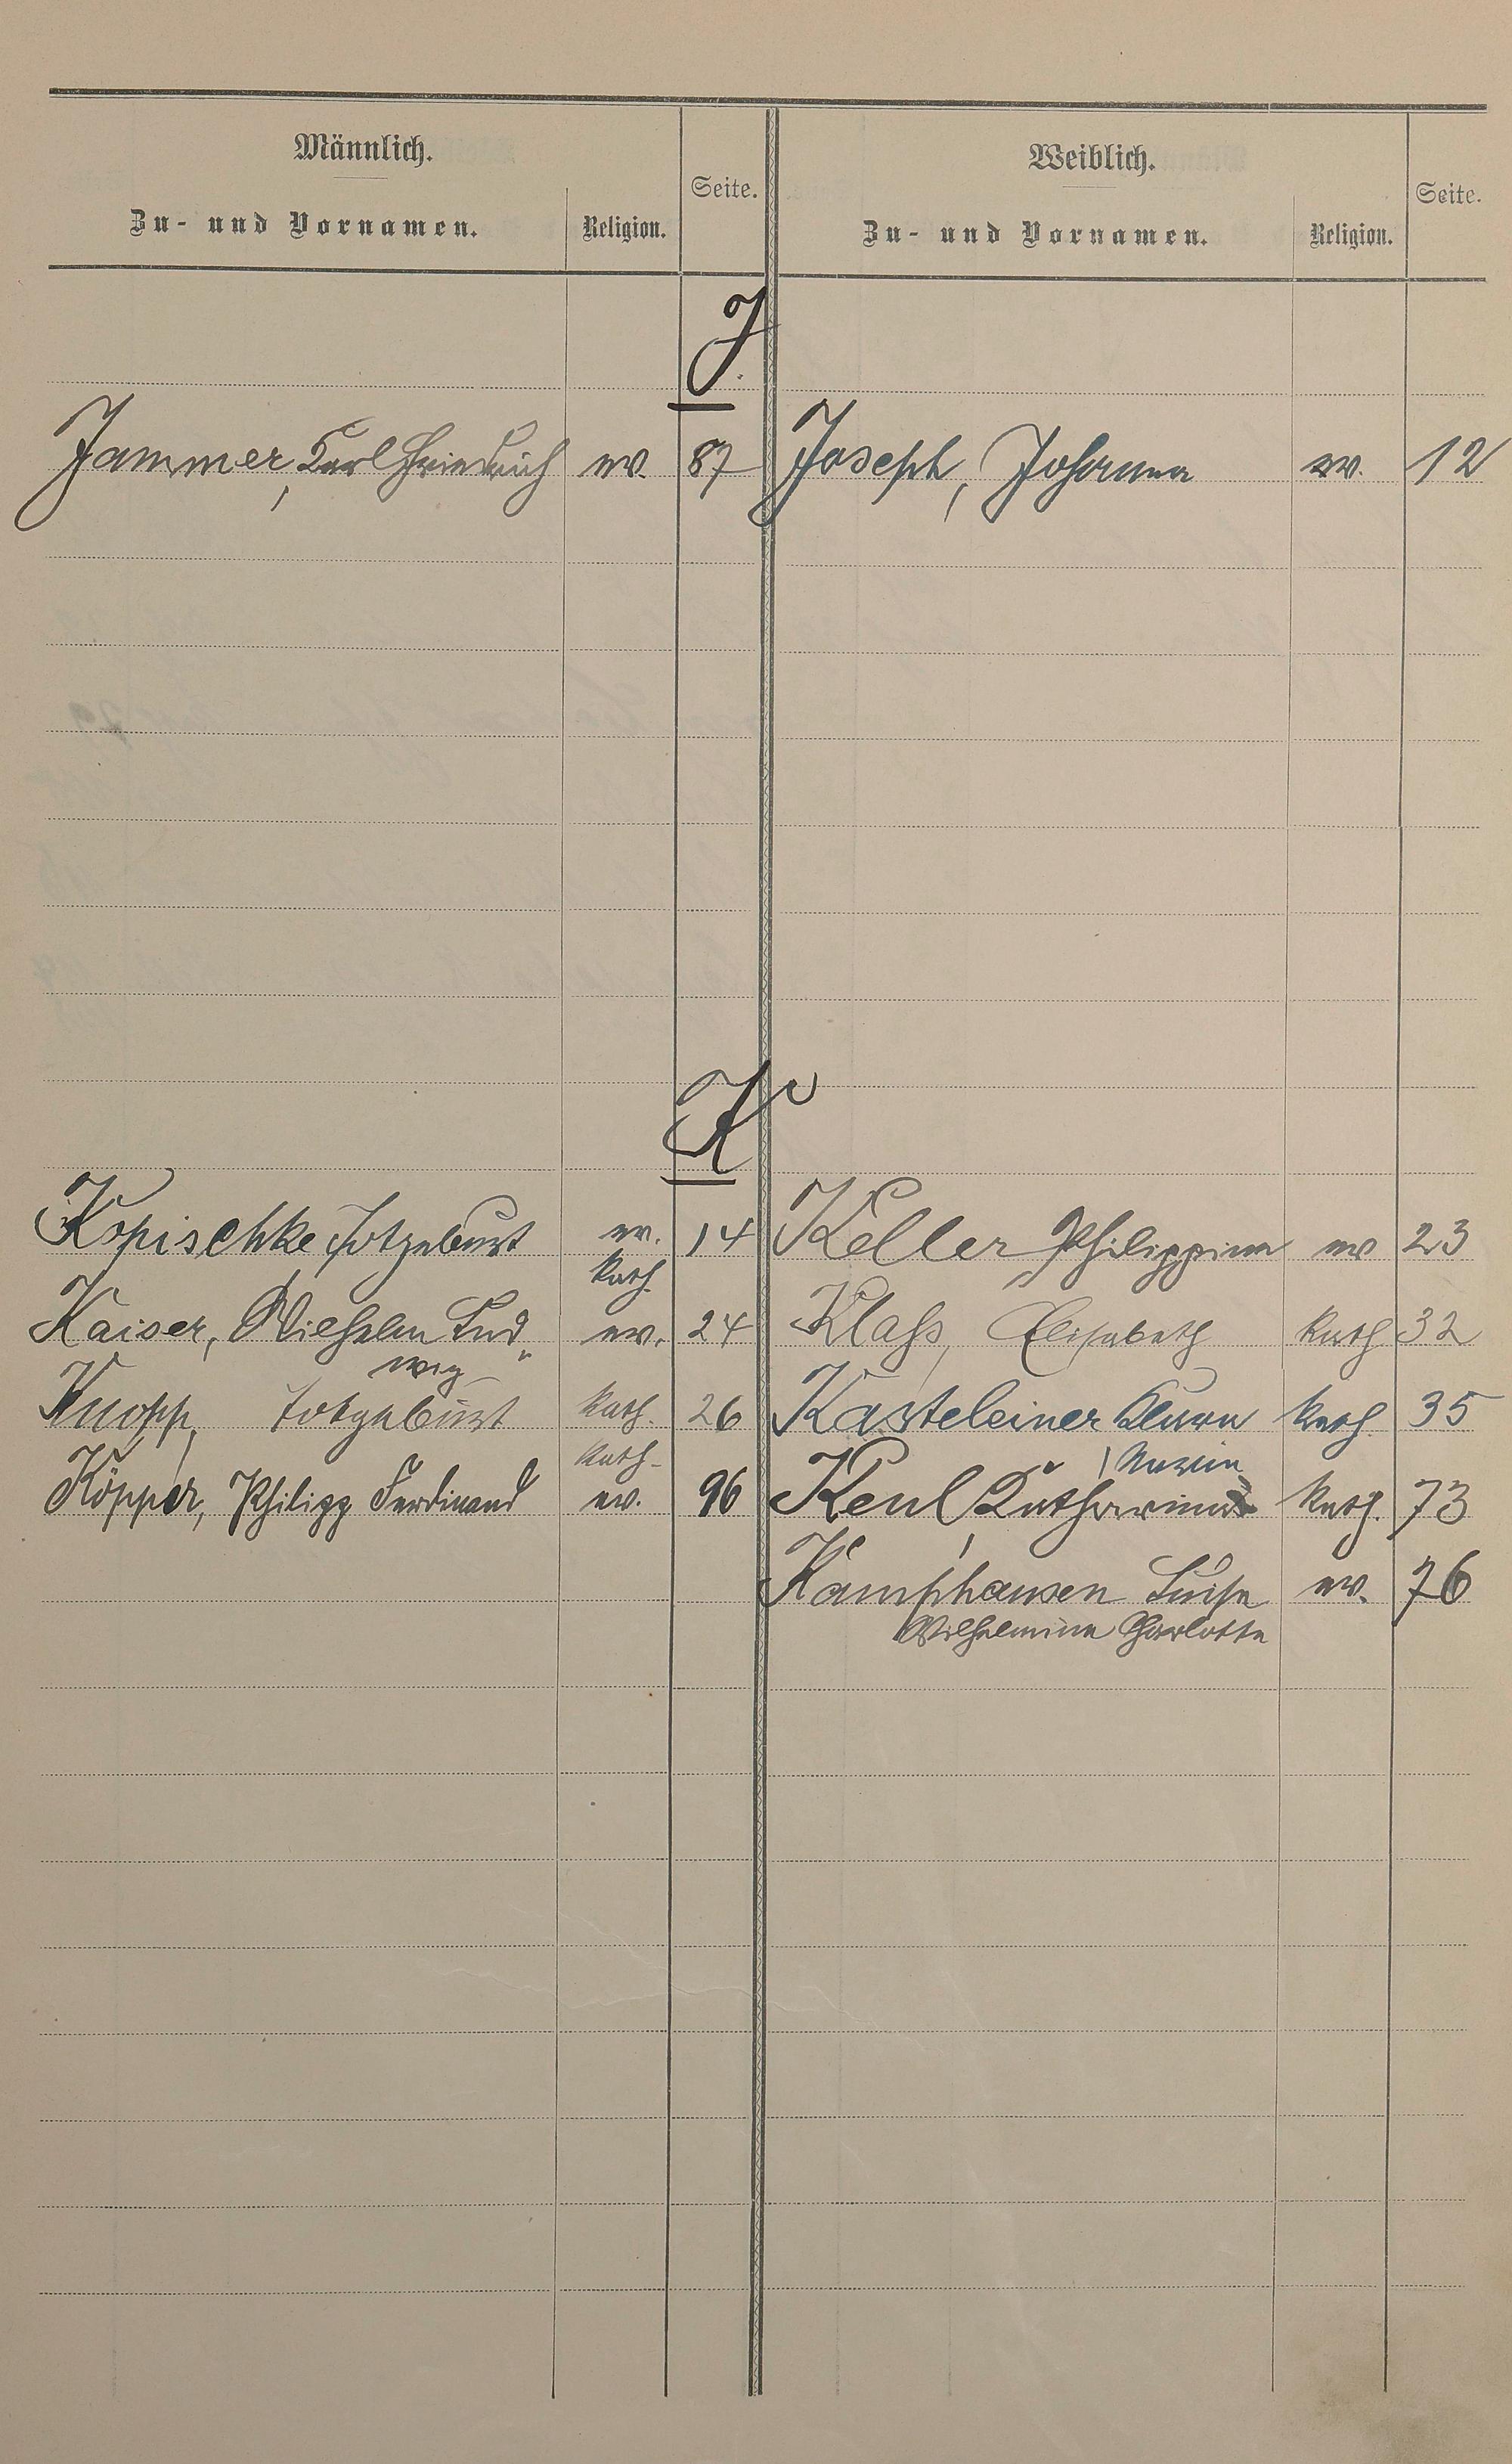 Männlich.
Zu- und Vornamen.
Religion.
Seite.
Weiblich.
Zu- und Vornamen.
Religion.
Seite.
J.
Jammer, Karl Friedrich ev. 87
Joseph, Johanna ev. 12
K
Kopischke, Totgeburt ev. 14
Keller, Philippine ev 23
kath.
Kaiser, Wilhelm Lud„ ev. 24
Klaß, Elisabeth kath 32
wig
Knopp, Totgeburt kath. 26
Kasteleiner Klara kath. 35
kath-
Maria
Köpper, Philipp Ferdinand ev. 96
Keul, Katharina kath. 73
Kamphausen Luise ev. 76
Wilhelmine Charlotte